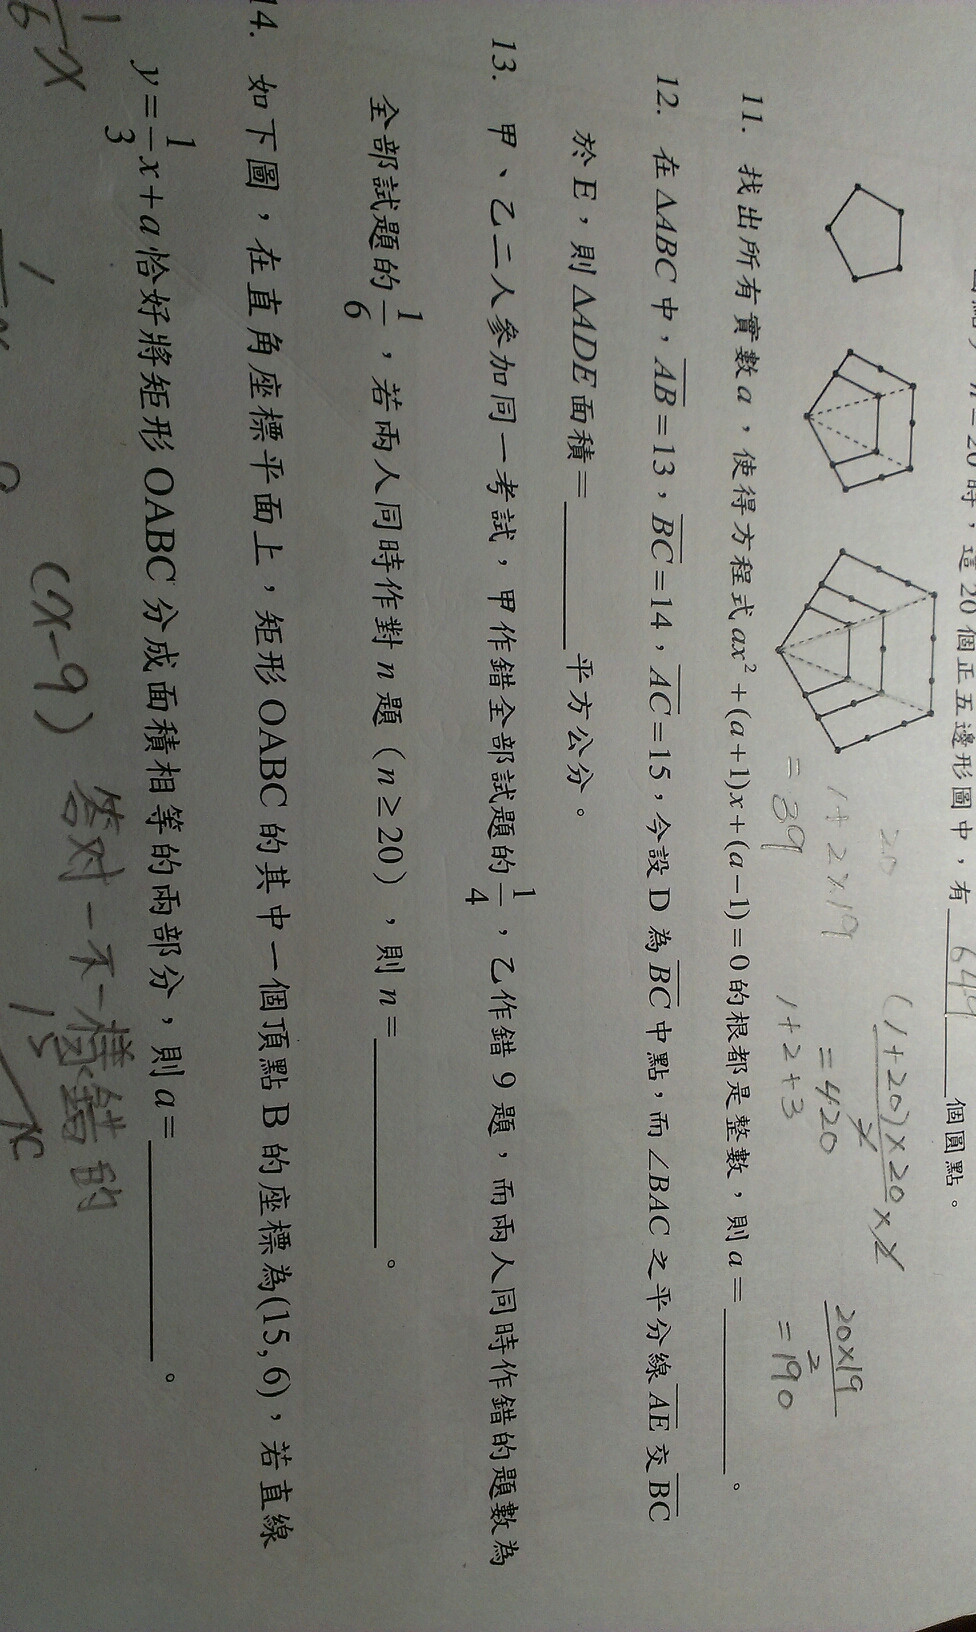 時，這20個正五邊形圖中，有 649 個圓點。
20
1+2×19
=39
(1+20)×20×2
2
=420
1+2+3
20×19
2
=190
11. 找出所有實數a，使得方程式ax²+(a+1)x+(a−1)=0的根都是整數，則a=＿＿＿。
12. 在ΔABC中，AB=13，BC=14，AC=15，今設D為BC中點，而∠BAC之平分線AE交BC
於E，則ΔADE面積=＿＿＿平方公分。
13. 甲、乙二人參加同一考試，甲作錯全部試題的1/4，乙作錯9題，而兩人同時作錯的題數為
全部試題的1/6，若兩人同時作對n題（n≥20），則n=＿＿＿。
14. 如下圖，在直角座標平面上，矩形OABC的其中一個頂點B的座標為(15,6)，若直線
y=1/3x+a恰好將矩形OABC分成面積相等的兩部分，則a=＿＿＿。
1/6x
(x−9)
答对一不一樣錯的